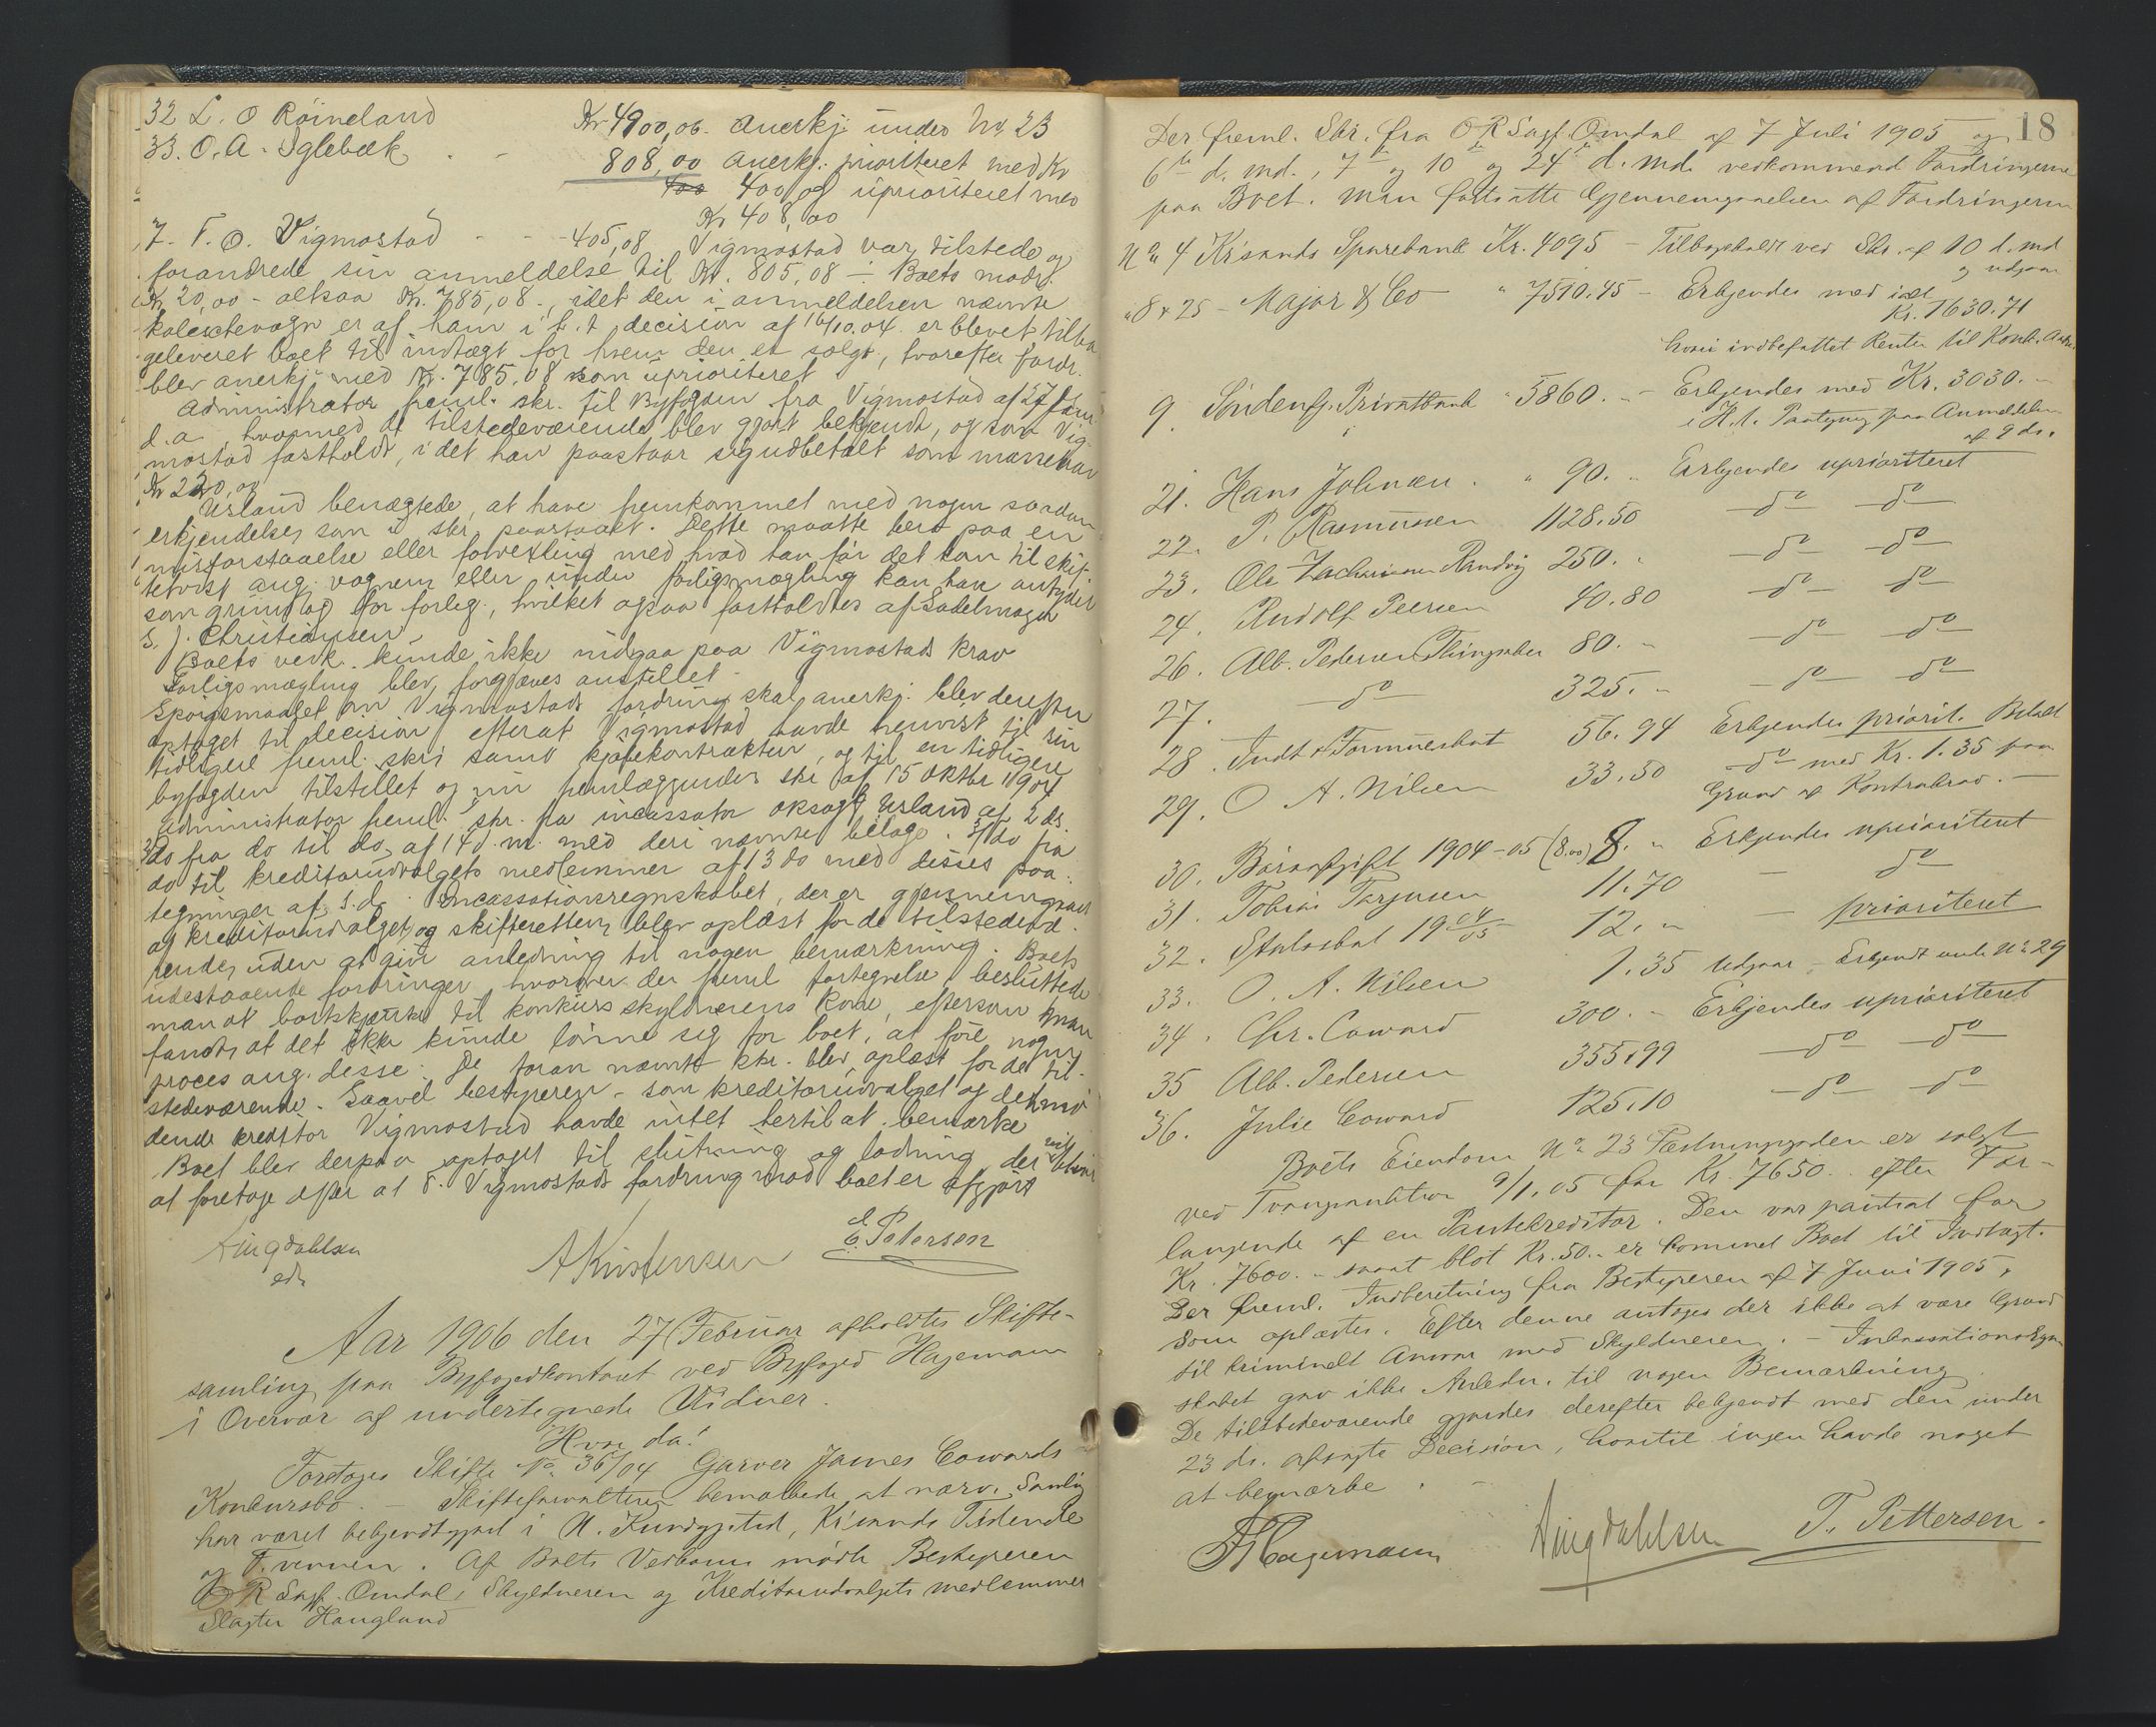 32 L. O Röineland Kr 4900,06. anerkj. under No. 23
33. O. A. Oglebæk 808,00 anerkj. prioriteret med Kr
400 og uprioriteret med
Kr 408,00
7. T. O. Vigmostad - - - 405,08 Vigmostad var tilstede og
forandrede sin anmeldelse til Kr. 805,08 ÷ Boets modr.
Kr 20,00 - altsaa Kr. 785,08, idet den i anmeldelsen nævnte
kaleschevogn er af ham i h. t. decision af 16/10.04 er blevet tilba
geleveret boet til indtægt for hvem den er solgt, hvorefter fordr.
blev anerkj. med Kr. 785,08 som uprioriteret
Administrator freml. skr. til Byfogden fra Vigmostad af 27 Jan
d. a. hvormed de tilstedeværende blev gjort bekjendt, og som Vig
mostad fastholdt, idet han paastaar sig udbetalt som massekrav
Kr 220,00
Usland benægtede, at have fremkommet med nogen saadan
erkjendelse som i skr. paastaaet. Dette maatte bero paa en
misforstaaelse eller forvexling med hvad han før det kom til skif
tetvist ang. vognen eller under forligsmægling kan have antydet
som grundlag for forlig, hvilket ogsaa fastholdtes af Sadelmager
S. J. Christiansen.
Boets vedk. kunde ikke indgaa paa Vigmostads krav
Forligsmægling blev forgjæves anstillet.
Spørgsmaalet om Vigmostads fordring skal anerkj. blev derefter
optaget til decision efterat Vigmostad havde henvist til sin
tidligere freml. skr. samt kjøbekontrakten, og til en tidligere
byfogden tilstillet og nu fremlæggendes skr af 15 oktbr 1904
Administrator freml. skr. fra incassator oksagf. Usland af 2 ds.
do fra do til do, af 14 d. m. med deri nævnte bilage. do fra
do til kreditorudvalgets medlemmer af 13 do med disses paa-
tegninger af s. d. Incassationsregnskabet, der er gjennemgaaet
af kreditorudvalget og skifteretten, blev oplæst for de tilstedevæ-
rende, uden at give anledning til nogen bemærkning. Boets
udestaaende fordringer, hvorover der freml fortegnelse, besluttede
man at bortskjænke til konkursskyldnerens kone, eftersom man
fandt, at det ikke kunde lønne sig for boet, at føre nogen
proces ang. disse. De foran nævnte skr. blev oplæst for de til-
stedeværende. Saavel bestyreren - som kreditorudvalget og den mø
dende kreditor Vigmostad havde intet hertil at bemærke
Boet blev derpaa optaget til slutning og lodning der vil blive
at foretage efter at T. Vigmostads fordring mod boet er afgjort
Aingdahlsen
edv
A Kristensen
E. Petersen
Aar 1906 den 27 Februar afholdtes Skifte-
samling paa Byfogedkontoret ved Byfoged Hagemann
i Overvær af undertegnede Vidner.
Hvor da:
Foretoges Skifte No. 36/04 Garver James Cowards
Konkursbo. - Skifteforvalteren bemærkede, at nærv. Samling
har været bekjendtgjort i N. Kundgj.tid, Kr'sands Tidende
og F.vennen. Af Boets Vedkom. mødte Bestyreren
O R Sagf. Omdal, Skyldneren og Kreditorudvalgets medlemmer
Slagter Haugland
18
Der freml. Skr. fra O R Sagf. Omdal af 7 Juli 1905 og
6te d. md., 7de og 10de og 24de d. md. vedkommend Fordringerne
paa Boet. Man fortsatte Gjennemgaaelsen af Fordringerne
No 4 Kr'sands Sparebank Kr. 4095 - Tilbagekaldt ved Skr. af 10 d. md
og udgaar
" 8 & 25 - Major & Co " 7510.45 - Erkjendes med ialt
Kr. 1630.71
hvori indbefattet Renter til Konk. Aabn.
9. Söndenfj. Privatbank " 5860. " - Erkjendes med Kr. 3030. -
i H. t. Paategning paa Anmeldelsen
af 9 ds.
21. Hans Johnsen . " 90. " Erkjendes uprioriteret
22. P. Rasmussen 1128.50 - do - - do -
23. Ole Zachariassen Randvig 250. " - do - - do -
24. Rudolf Peersen 40.80 - do - - do -
26. Alb. Pedersen Flingruber 80. " - do - - do -
27. - do - 325. " - do - - do -
28. Indt & Formueskat 56.94 Erkjendes priorit. Betalt
29. O. A. Nilsen 33.50 - do - med Kr. 1.35 paa
Grund af Kontrakrav. -
30. Baroafgift 1904-05 (8.00) 8. " Erkjendes uprioriteret
31. Tobias Torjusen 11.70 - do
32. Skoleskat 19 04/05 12. " - prioriteret
33. O. A. Nilsen 1.35 Udgaar - Erkjendt under No 29
34. Chr. Coward 300. - Erkjendes uprioriteret
35 Alb. Pedersen 355.99 - do - - do -
36. Julie Coward 125.10 - do - - do -
Boets Eiendom No 23 Fæstningsgaden er solgt
ved Tvangsauktion 9/1.05 for Kr. 7650. efter For-
langende af en Pantekreditor. Den var pantsat for
Kr. 7600. " saaat blot Kr. 50. " er kommet Boet til Indtægt.
Der freml. Indberetning fra Bestyreren af 7 Juni 1905,
som oplæstes. Efter denne antoges der ikke at være Grund
til kriminelt Ansvar mod Skyldneren. - Inkassationsregn
skabet gav ikke Anledn. til nogen Bemærkning
De tilstedeværende gjordes derefter bekjendt med den under
23 ds. afsagte Decision, hvortil ingen havde noget
at bemærke. -
F Hagemann
Aingdahlsen
T. Pettersen.